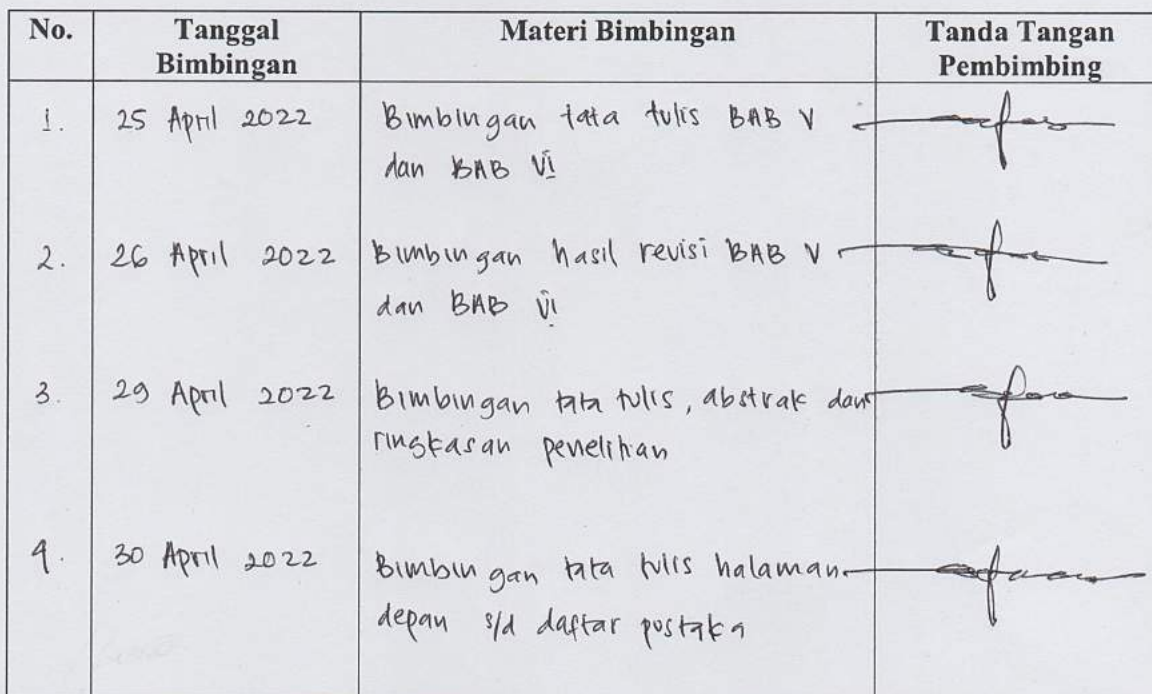 No. Tanggal Bimbingan Materi Bimbingan Tanda Tangan Pembimbing
1. 25 April 2022 Bimbingan tata tulis BAB V
dan BAB VI
2. 26 April 2022 Bimbingan hasil revisi BAB V
dan BAB VI
3. 29 April 2022 Bimbingan tata tulis, abstrak dan
ringkasan penelitian
4. 30 April 2022 Bimbingan tata tulis halaman
depan s/d daftar pustaka